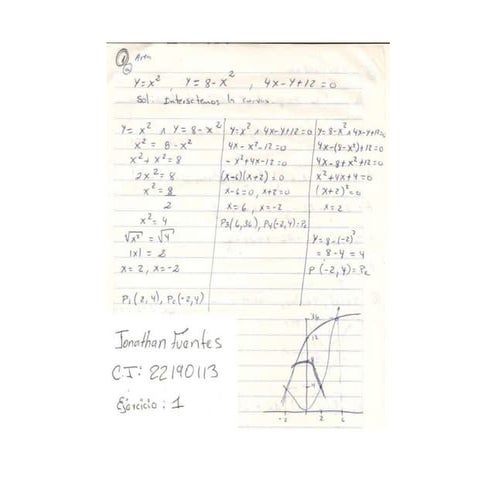 1 Area
a
Y=x² , Y=8-x² , 4x-Y+12=0
Sol. Intersectemos la curvas.
Y=x² ∧ Y=8-x²
x²=8-x²
x²+x²=8
2x²=8
x²=8
2
x²=4
√x²=√4
|x|=2
x=2, x=-2
P₁(2,4), P₂(-2,4)
Y=x² ∧ 4x-Y+12=0
4x-x²-12=0
-x²+4x-12=0
(x-6)(x+2)=0
x-6=0, x+2=0
x=6, x=-2
P₃(6,36), P₄(-2,4)=P₂
Y=8-x² ∧ 4x-Y+12=0
4x-(8-x²)+12=0
4x-8+x²+12=0
x²+4x+4=0
(x+2)²=0
x=2
Y=8-(-2)²
=8-4=4
P(-2,4)=P₂
Jonathan Fuentes
C.I: 22190113
Ejercicio: 1
36
12
8
4
-2 2 6